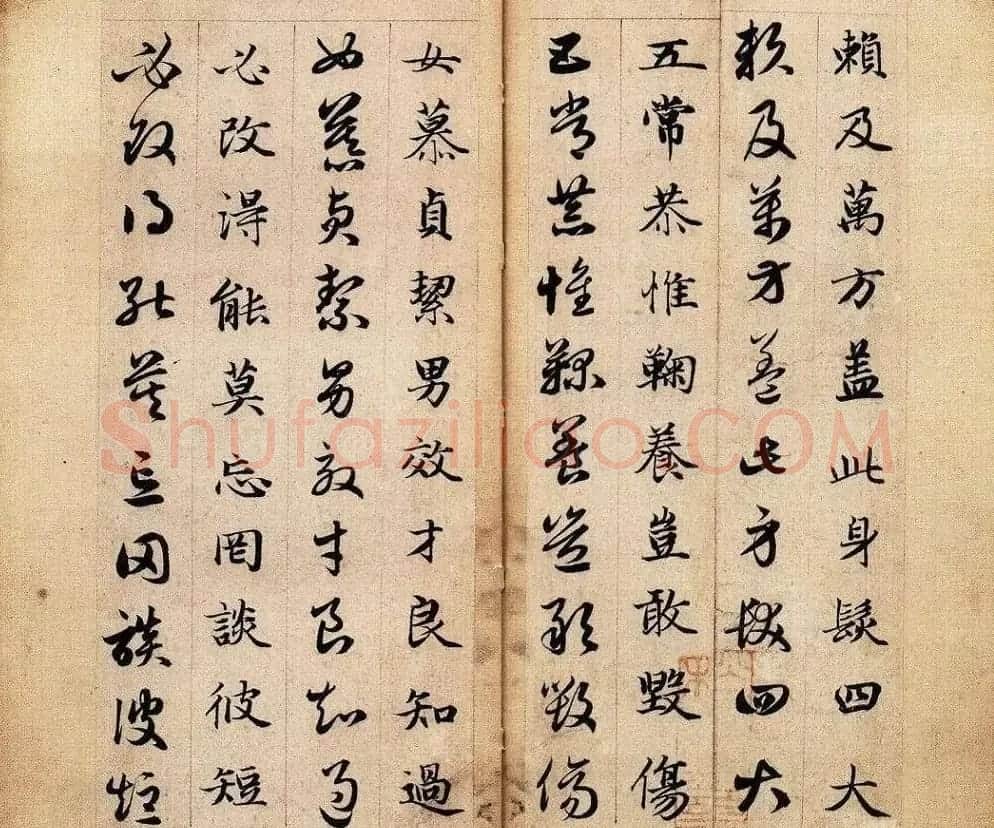 賴及萬方盖此身髮四大
賴及萬方盖此身髮四大
五常恭惟鞠養豈敢毀傷
五常恭惟鞠養豈敢毀傷
女慕貞絜男效才良知過
女慕貞絜男效才良知過
必改得能莫忘罔談彼短
必改得能莫忘罔談彼短
Shufaziliao.COM